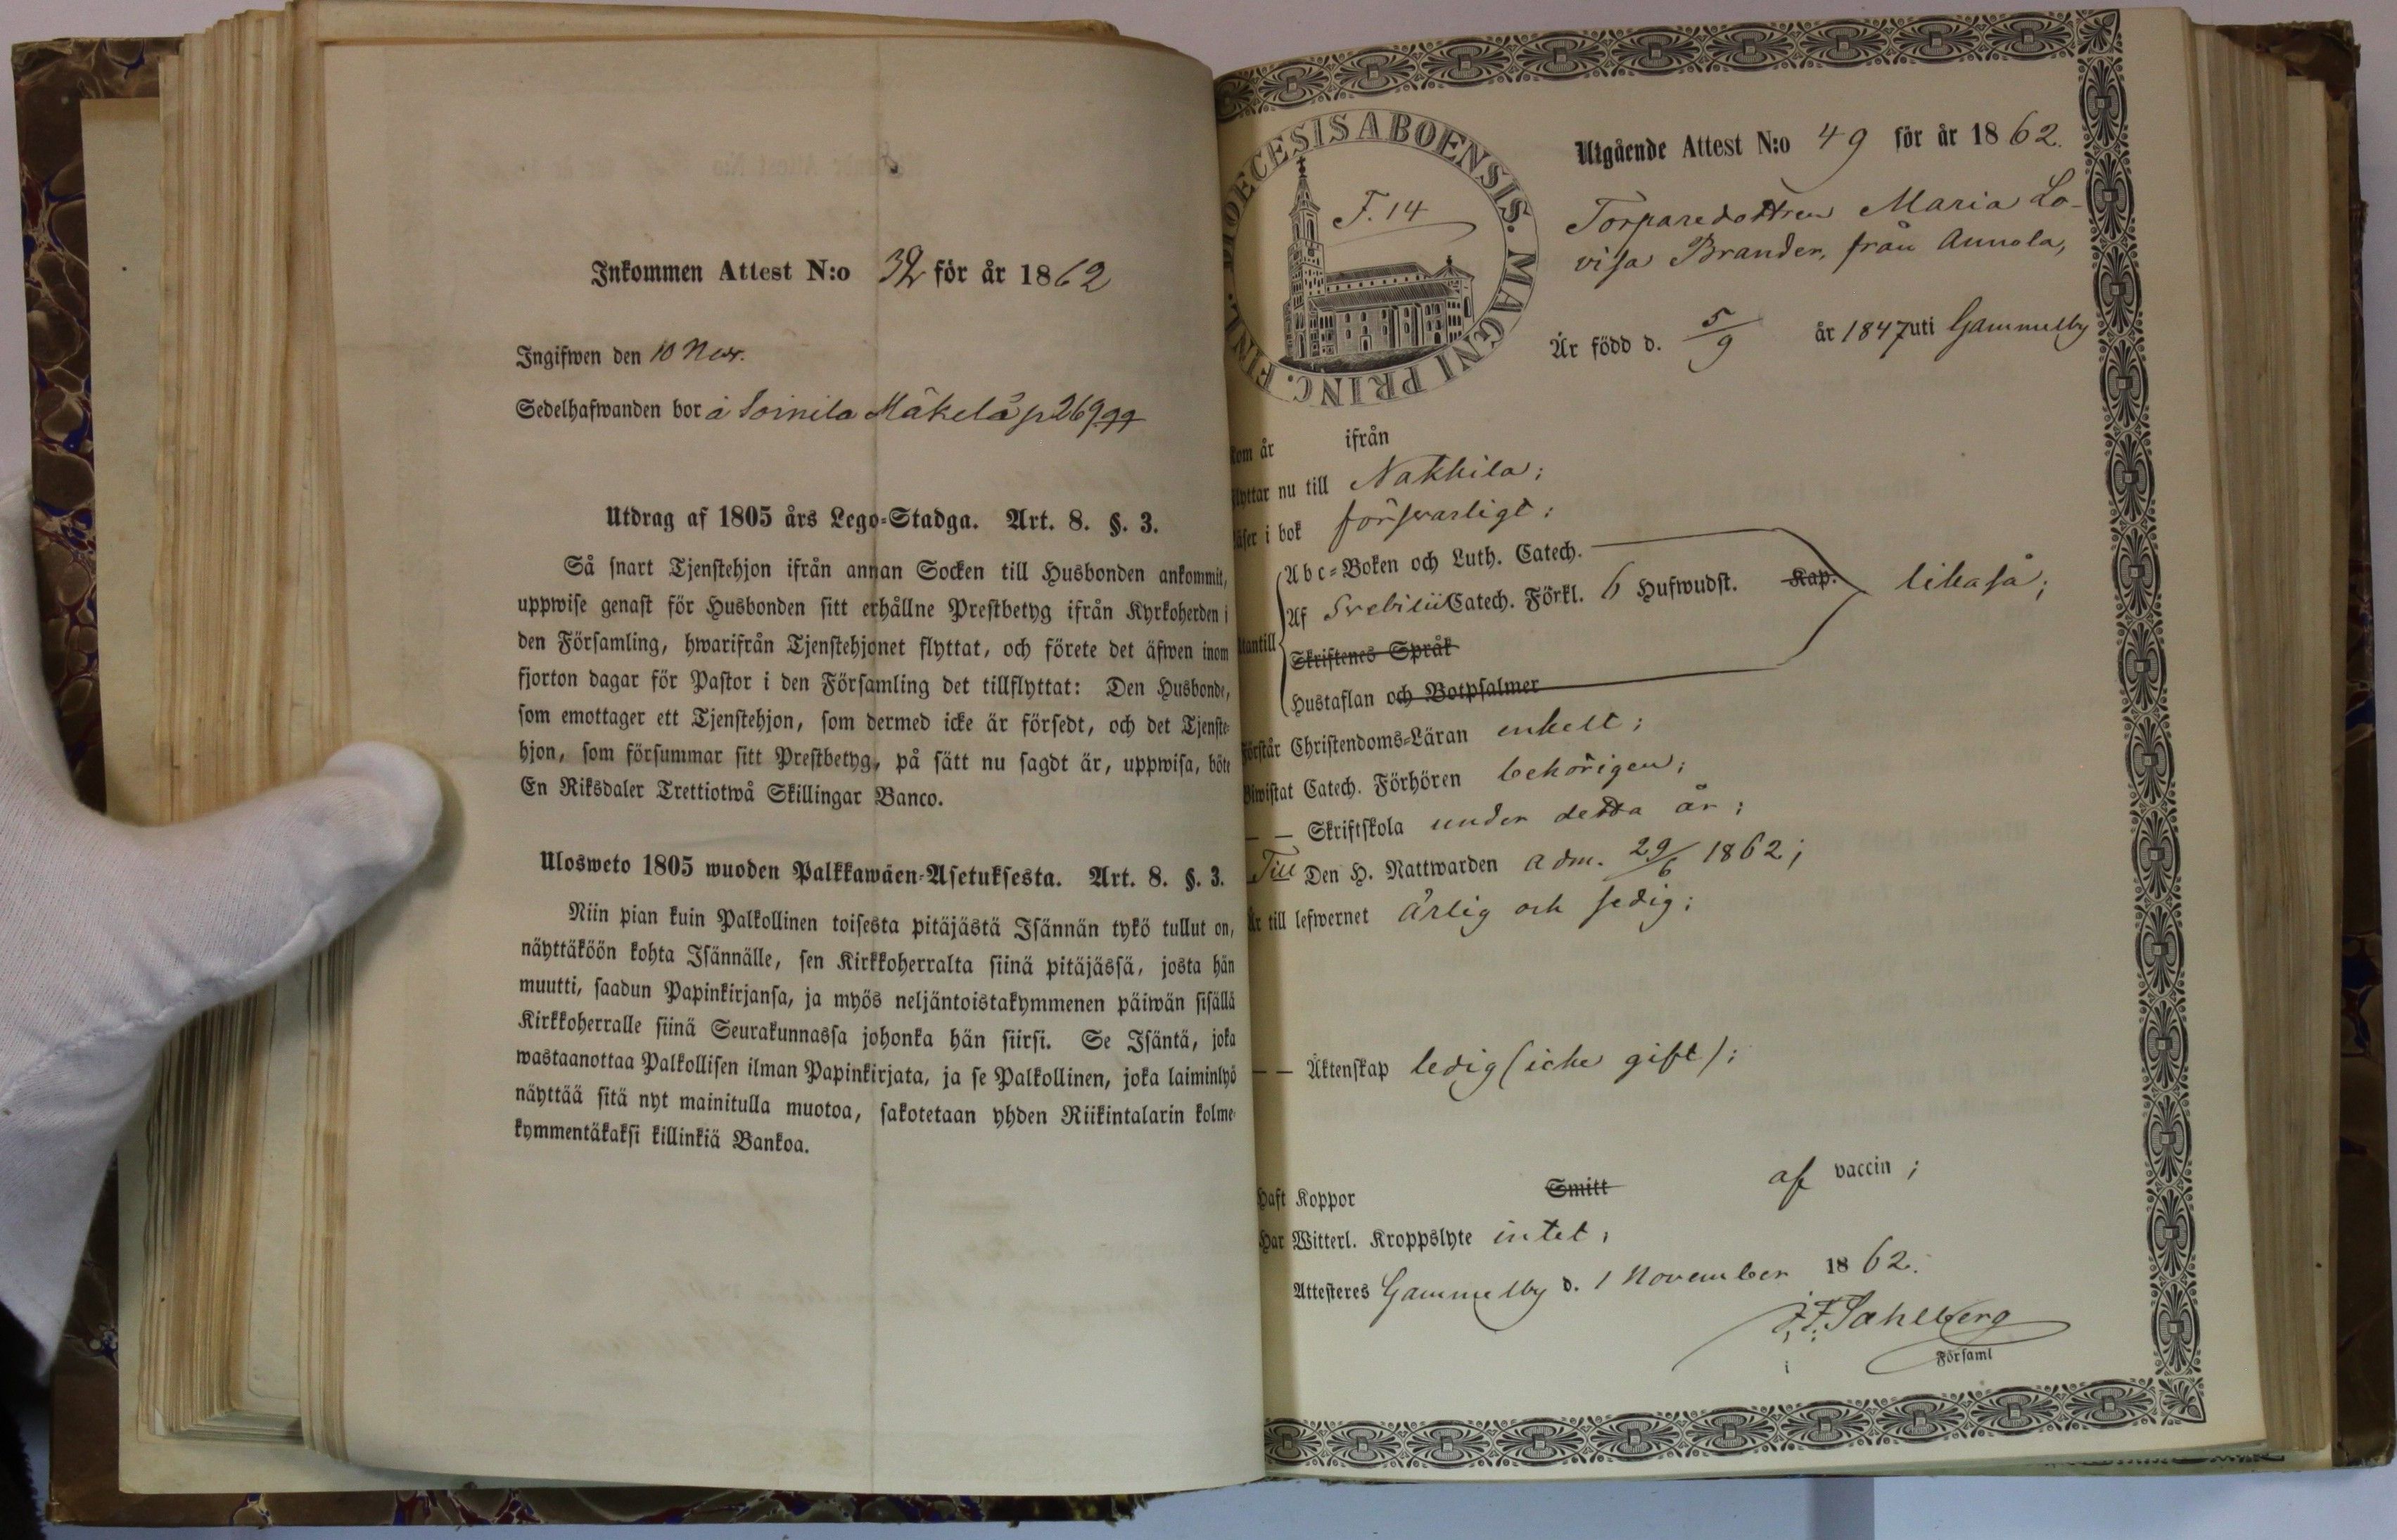 Inkommen Attest N:o 32 för år 1862
Ingifwen den 10 Nov.
Sedelhafwanden bor å Soinila Mäkelä p 269
Utdrag af 1805 års Lego-Stadga. Art. 8. §. 3.
Så snart Tjenstehjon ifrån annan Socken till Husbonden ankommit,
uppwise genast för Husbonden sitt erhållne Prestbetyg ifrån Kyrkoherden i
den Församling, hwarifrån Tjenstehjonet flyttat, och förete det äfwen inom
fjorton dagar för Pastor i den Församling det tillflyttat: Den Husbonde,
som emottager ett Tjenstehjon, som dermed icke är försedt, och det Tjenste-
hjon, som försummar sitt Prestbetyg, på sätt nu sagdt är, uppwisa, böte
En Riksdaler Trettiotwå Skillingar Banco.
Ulosweto 1805 wuoden Palkkawäen-Asetuksesta. Art. 8. §. 3.
Niin pian kuin Palkollinen toisesta pitäjästä Isännän tykö tullut on,
näyttäköön kohta Isännälle, sen Kirkkoherralta siinä pitäjässä, josta hän
muutti, saadun Papinkirjansa, ja myös neljäntoistakymmenen päiwän sisällä
Kirkkoherralle siinä Seurakunnassa johonka hän siirsi. Se Isäntä, joka
wastaanottaa Palkollisen ilman Papinkirjata, ja se Palkollinen, joka laiminlyö
näyttää sitä nyt mainitulla muotoa, sakotetaan yhden Riikintalarin kolme-
kymmentäkaksi killinkiä Bankoa.
DIOECESIS ABOENSIS. MAGNI PRINC. FINL.
F. 14
Utgående Attest N:o 49 för år 1862.
Torparedottren Maria Lo-
visa Brander, från Annola,
Är född d. 5/9 år 1847 uti Gammelby
kom år ifrån
flyttar nu till Nakkila;
läser i bok försvarligt;
Abc-Boken och Luth. Catech.
Af Svebilii Catech. Förkl. 6 Hufwudst. Kap. likaså;
utantill
Skriftenes Språk
Hustaflan och Botpsalmer
Förstår Christendoms-Läran enkelt;
Biwistat Catech. Förhören behörigen;
— — Skriftskola under detta år;
Till Den H. Nattwarden adm. 29/6 1862;
Är till lefwernet ärlig och sedig;
— — Äktenskap ledig (icke gift);
Haft Koppor Smitt af vaccin;
Har Witterl. Kroppslyte intet;
Attesteres Gammelby d. 1 November 1862.
J. F. Sahlberg
i Församl